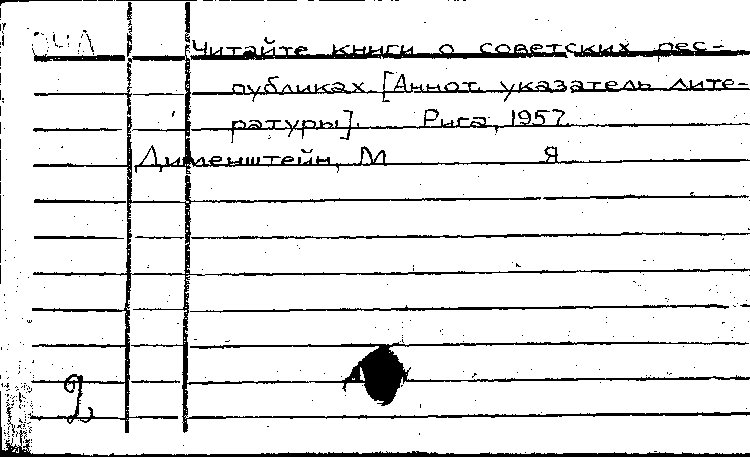 ОЧЛ Читайте книги о советских рес-
публиках [Аннот. указатель лите-
ратуры]. Рига, 1957
Дименштейн, М Я